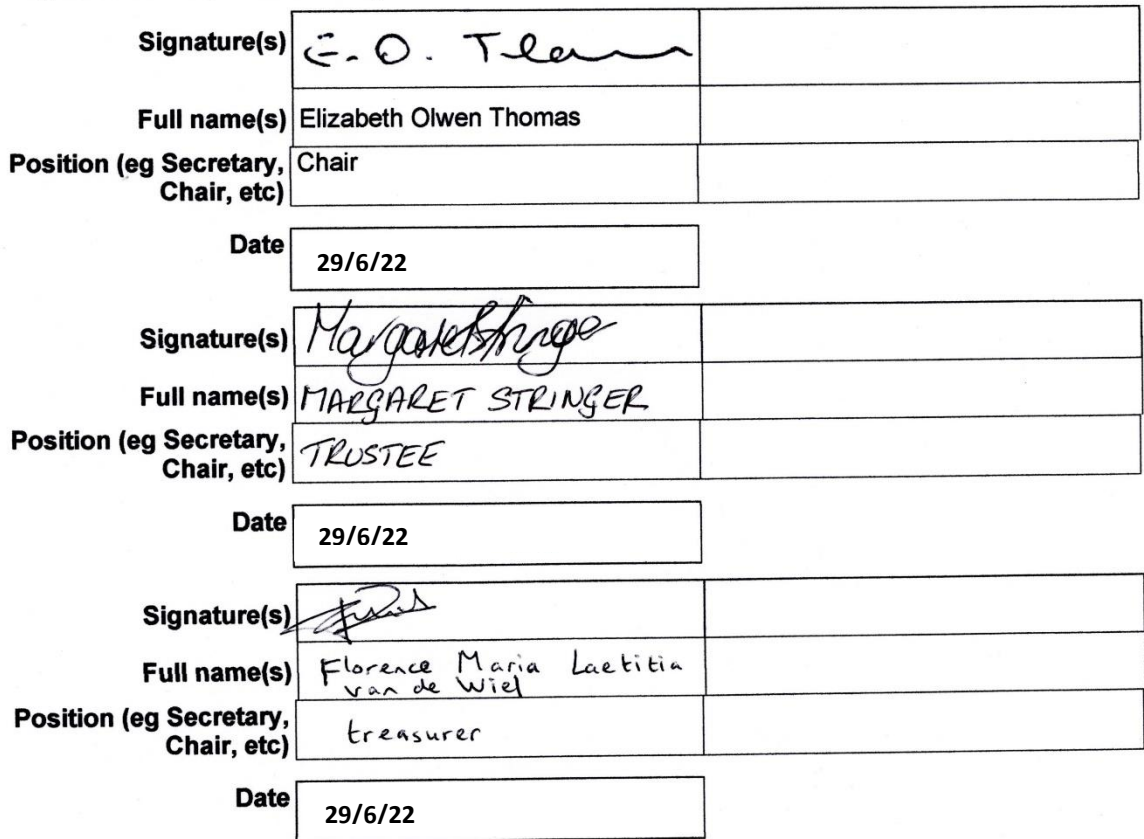 Signature(s) E. O. Thomas
Full name(s) Elizabeth Olwen Thomas
Position (eg Secretary, Chair
Chair, etc)
Date
29/6/22
Signature(s) Margaret Stringer
Full name(s) MARGARET STRINGER
Position (eg Secretary,
Chair, etc) TRUSTEE
Date
29/6/22
Signature(s)
Full name(s) Florence Maria Laetitia
van de Wiel
Position (eg Secretary,
Chair, etc) treasurer
Date
29/6/22